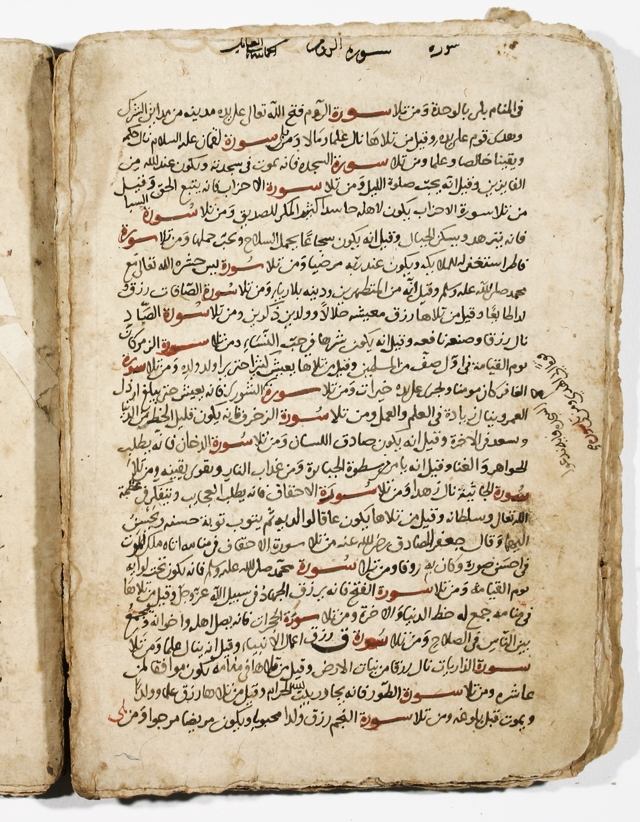 سورة الروم
في المنام بلي بالوحدة ومن تلا سورة الروم فتح الله تعالى على يده مدينه من مداين الشرك
وهدى قوم على يده وقيل من تلاها نال علما ومالا ومن تلا سورة لقمان عليه السلام نال حكم
ويقينا خالصا وعلما ومن تلا سورة السجده فانه يموت في سجدته ويكون عند الله من
الفايزين وقيل انه يحب صلوة الليل ومن تلا سورة الاحزاب فانه يتبع الحق وقيل
من تلا سورة الاحزاب يكون لاهله حاسدا كثير المكر للصديق ومن تلا سورة السبا
فانه يتزهد ويسكن الجبال وقيل انه يكون شجاعا يحمل السلاح ويحب حملها ومن تلا سورة
فاطر استغفر له الملايكه ويكون عند ربه مرضيا ومن تلا سورة يس حشره الله تعالى مع
محمد صلى الله عليه وسلم وقيل انه من المتطهرين ودينه بلا ريا ومن تلا سورة الصافات رزق و
لدا طايعا وقيل من تلاها رزق معيشه حلالا وولدين ذكرين ومن تلا سورة الصاد
نال رزقا وصنعه نافعه وقيل انه يكون شرها في حب النساء ومن تلا سورة الزمر كان
يوم القيامة في اول صف من المسلمين وقيل من تلاها يعيش كثيرا حتى يرا ولد ولده ومن تلا سورة
الغافر كان مومنا ويجري على يده خيرات ومن تلا سورة الشورى فانه يعيش حتى يبلغ ارذل
العمر وينال زيادة في العلم والعمل ومن تلا سورة الزخرف فانه يكون قليل الحظ من الدنيا
وسعد في الاخرة وقيل انه يكون صادق اللسان ومن تلا سورة الدخان فانه يطلب
الجواهر والغنا وقيل انه يامن سطوة الجبابرة ومن عذاب النار ويقوى يقينه ومن تلا
سورة الجاثية نال زهدا ومن تلا سورة الاحقاف فانه يطلب العجايب ويتفكر في عظمة
الله تعالى وسلطانه وقيل من تلاها يكون عاقا لوالديه ثم يتوب توبة حسنه ويحسن
اليهما وقال جعفر الصادق رضي الله عنه من تلا سورة الاحقاف في منامه اتاه ملك الموت
في احسن صورة وكان به روفا ومن تلا سورة محمد صلى الله عليه وسلم فانه يكون تحت لوايه
يوم القيامة ومن تلا سورة الفتح فانه يرزق الجهاد في سبيل الله عز وجل وقيل من تلاها
في منامه جمع له حظ الدنيا والاخرة ومن تلا سورة الحجرات فانه يصل اهله واخوانه ويجمع
بين الناس في الصلاح ومن تلا سورة ق رزق اعمال الانبياء وقيل انه ينال علما ومن تلا
سورة الذاريات نال رزقا من نبات الارض وقيل من تلاها في منامه يكون موافقا لمن
عاشره ومن تلا سورة الطور فانه يجاور بيت الله الحرام وقيل من تلاها رزق علما وولدا
ويموت قبل بلوغه ومن تلا سورة النجم رزق ولدا محبوبا ويكون مريضا مرجوا ومن تلى